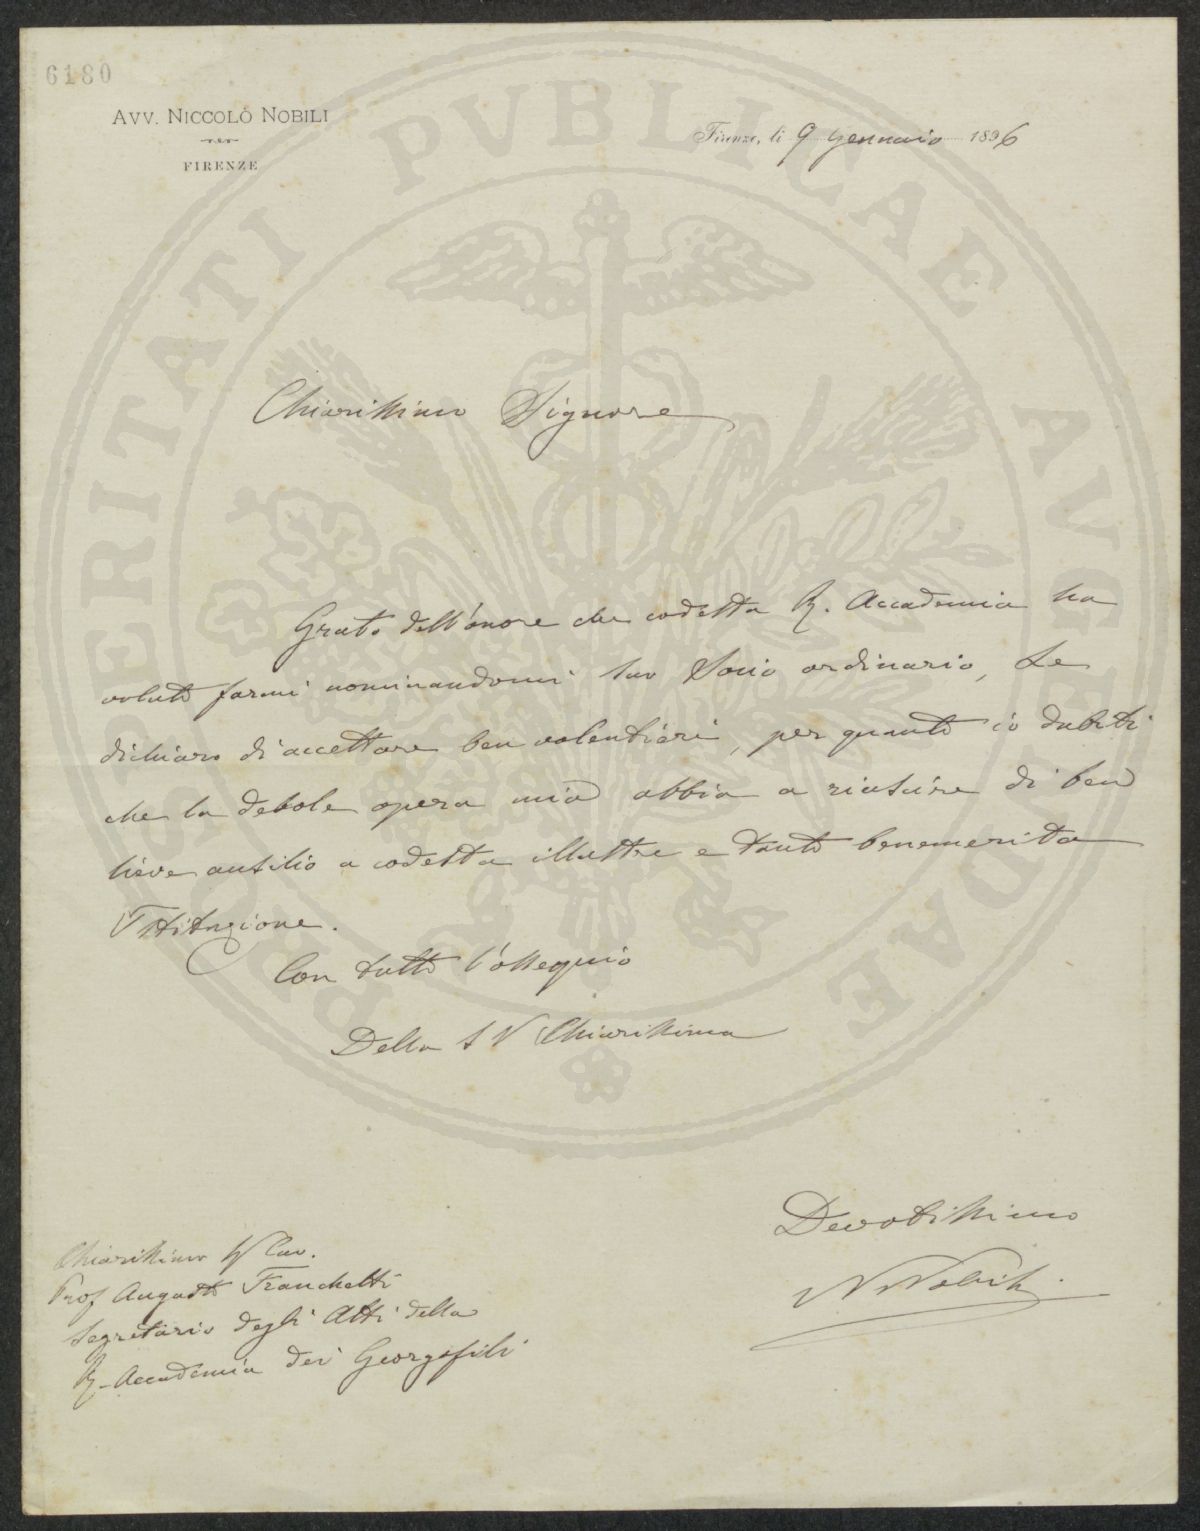 6180
AVV. NICCOLÒ NOBILI
FIRENZE
Firenze, li 9 Gennaio 1896
Chiarissimo Signore
Grato dell'onore che codesta R. Accademia ha
voluto farmi nominandomi suo Socio ordinario, Le
dichiaro di accettare ben volentieri, per quanto io dubiti
che la debole opera mia abbia a riuscire di ben
lieve ausilio a codesta illustre e tanto benemerita
Istituzione.
Con tutto l'ossequio
Della S V Chiarissima
Devotissimo
N Nobili
Chiarissimo Sr Cav.
Prof Augusto Franchetti
Segretario degli Atti della
R. Accademia dei Georgofili
PROSPERITATI PVBLICAE AVGENDAE